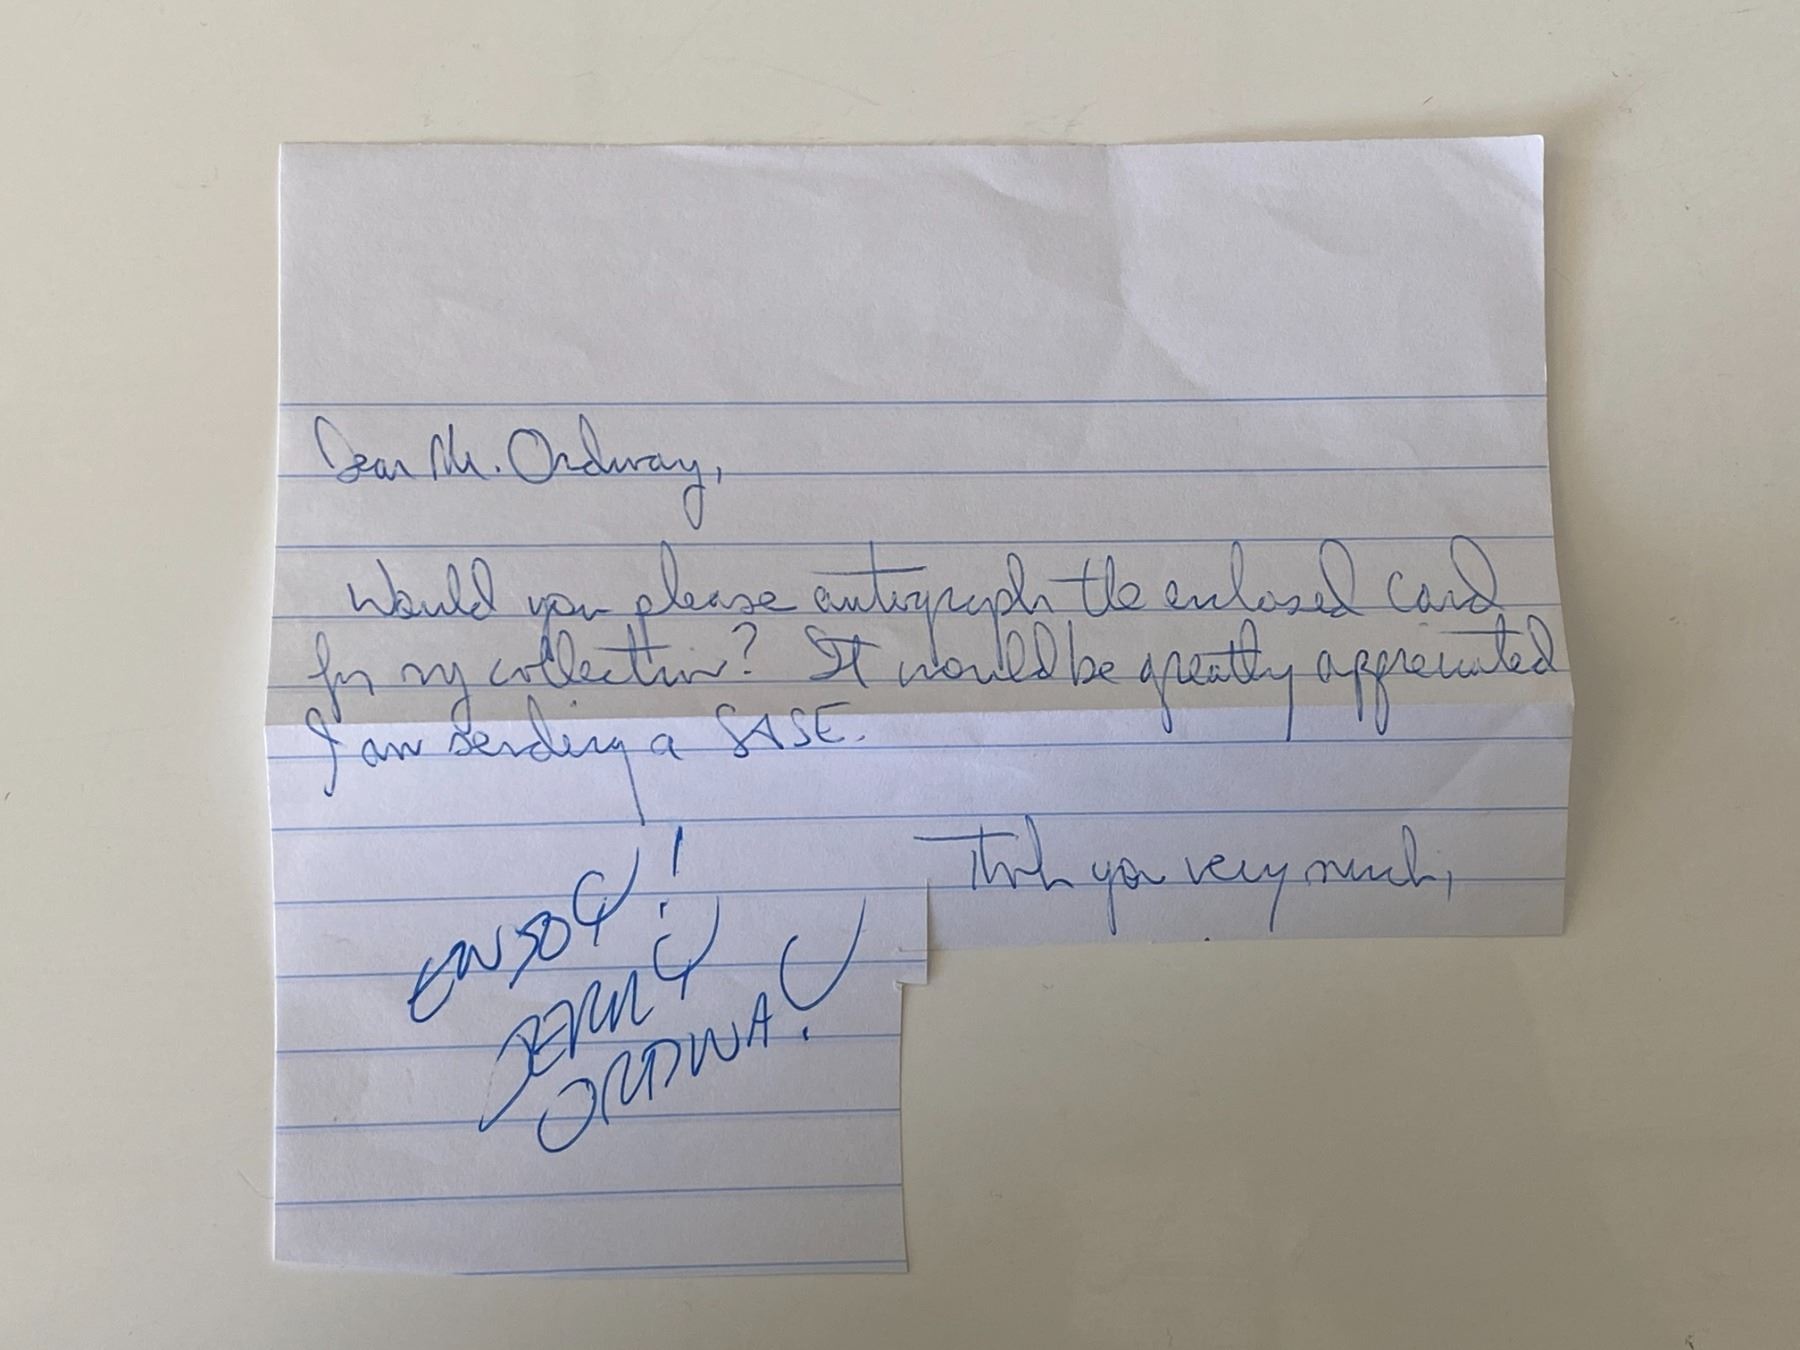 Dear Mr. Ordway,
Would you please autograph the enclosed card
for my collection? It would be greatly appreciated
I am sending a SASE.
Thank you very much,
ENJOY!
JERRY
ORDWAY.